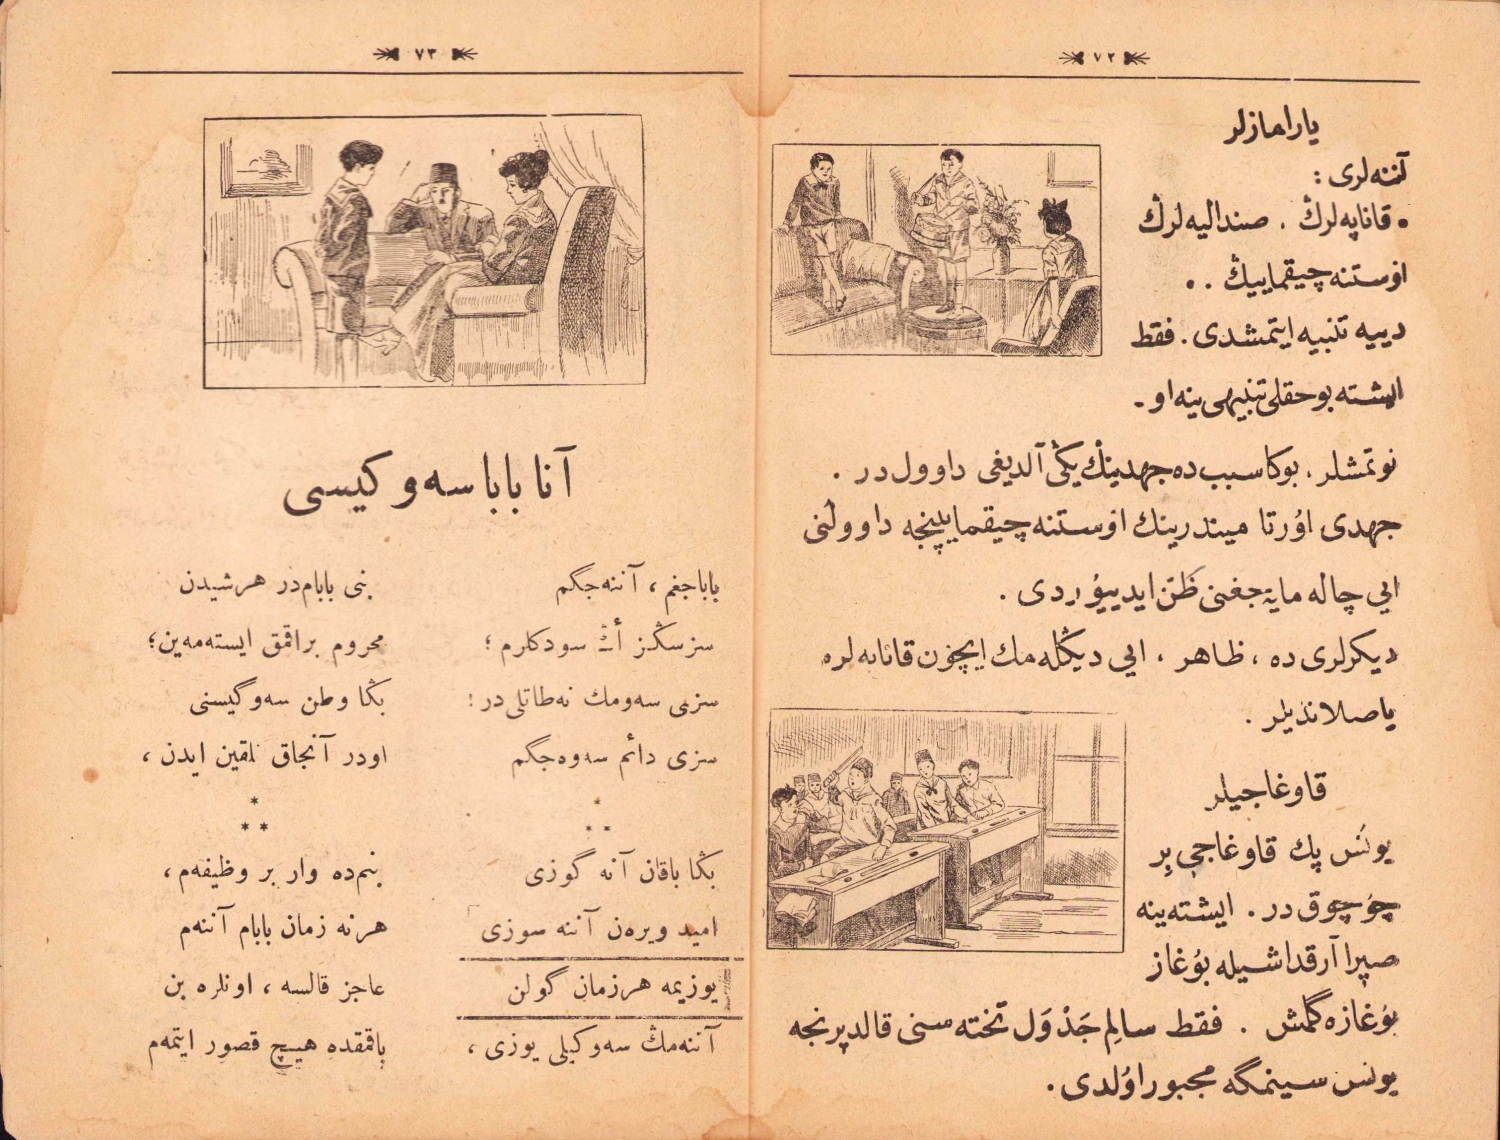 ٧٢
ياراماز لر
آننه لری :
• قاناپه لرڭ . صنداليه لرڭ
اوستنه چيقماييڭ . •
دييه تنبيه ايتمشدی . فقط
ايشته بو حقلی تنبيهی ينه او -
نوتمشلر . بوكا سبب ده جهدينڭ يڭی آلديغی داوول در .
جهدی اۇرتا ميندرينڭ اوستنه چيقمايينجه داوولنی
ايی چاله مايه جغنی ظَنّ ايدييۇردی .
ديكرلری ده ، ظاهر ، ايی ديڭله مك ايچون قاناپه لره
ياصلانديلر .
قاوغاجيلر
يونس پك قاوغاجی بِر
چۇجوق در . ايشته ينه
صيرا آرقداشيله بۇغاز
بۇغازه گلمش . فقط سالِم جَدْوَل تخته سنی قالديرنجه
يونس سينمگه مجبور اوُلدی .
٧٣
آنا بابا سه وكيسی
باباجغم ، آننه جگم
سزسڭز أڭ سودكلرم ؛
سزی سه ومك نه طاتلی در :
سزی دائم سه وه جگم
*
* *
بڭا باقان آنه گوزی
اميد ويره ن آننه سوزی
يوزيمه هر زمان گولن
آننه مڭ سه وكيلی يوزی ،
بنی بابام در هر شيدن
محروم براقمق ايسته مه ين ؛
بڭا وطن سه وگيسنی
اودر آنجاق تلقين ايدن ،
*
* *
بنم ده وار بر وظيفه م ،
هر نه زمان بابام آننه م
عاجز قالسه ، اونلره بن
باقمقده هيچ قصور ايتمه م